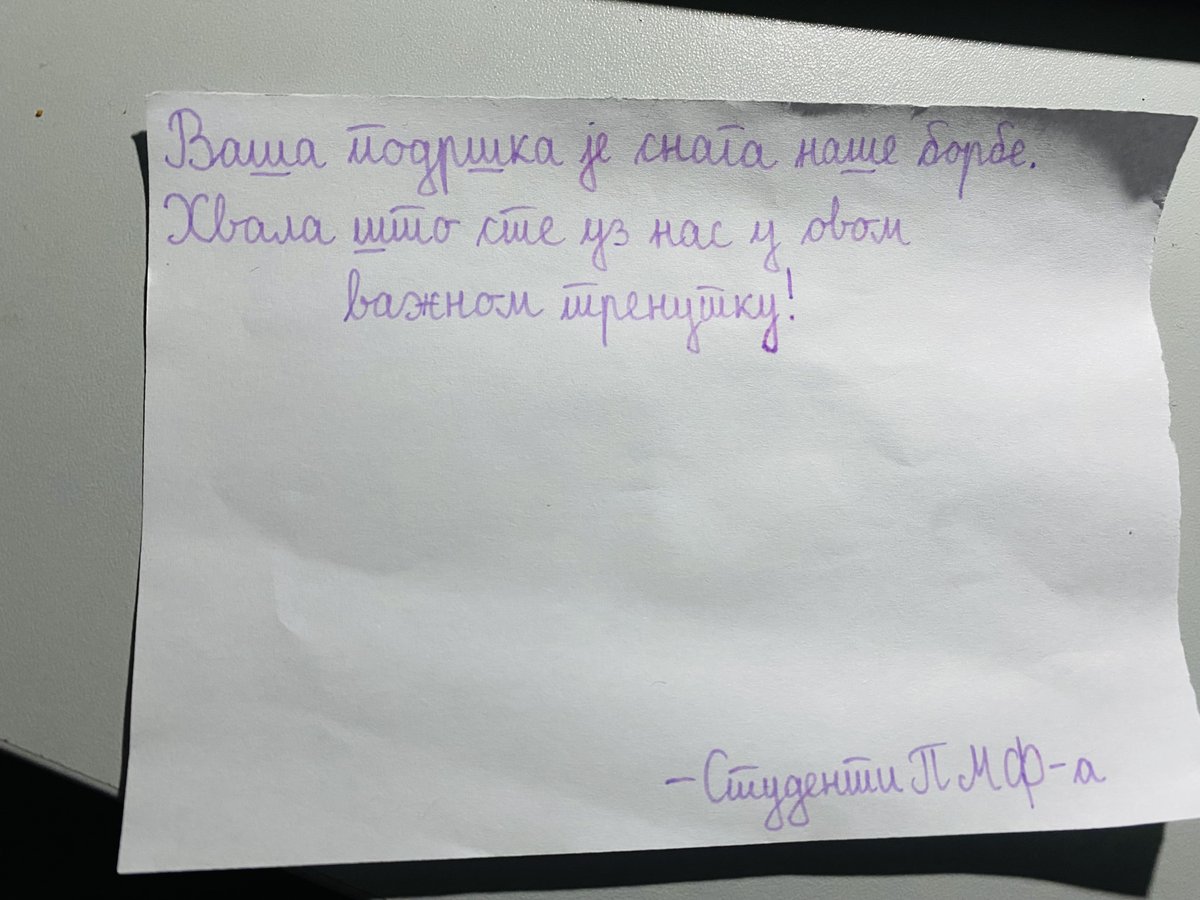 Ваша подршка је снага наше борбе.
Хвала што сте уз нас у овом
важном тренутку!
-Студенти ПМФ-а